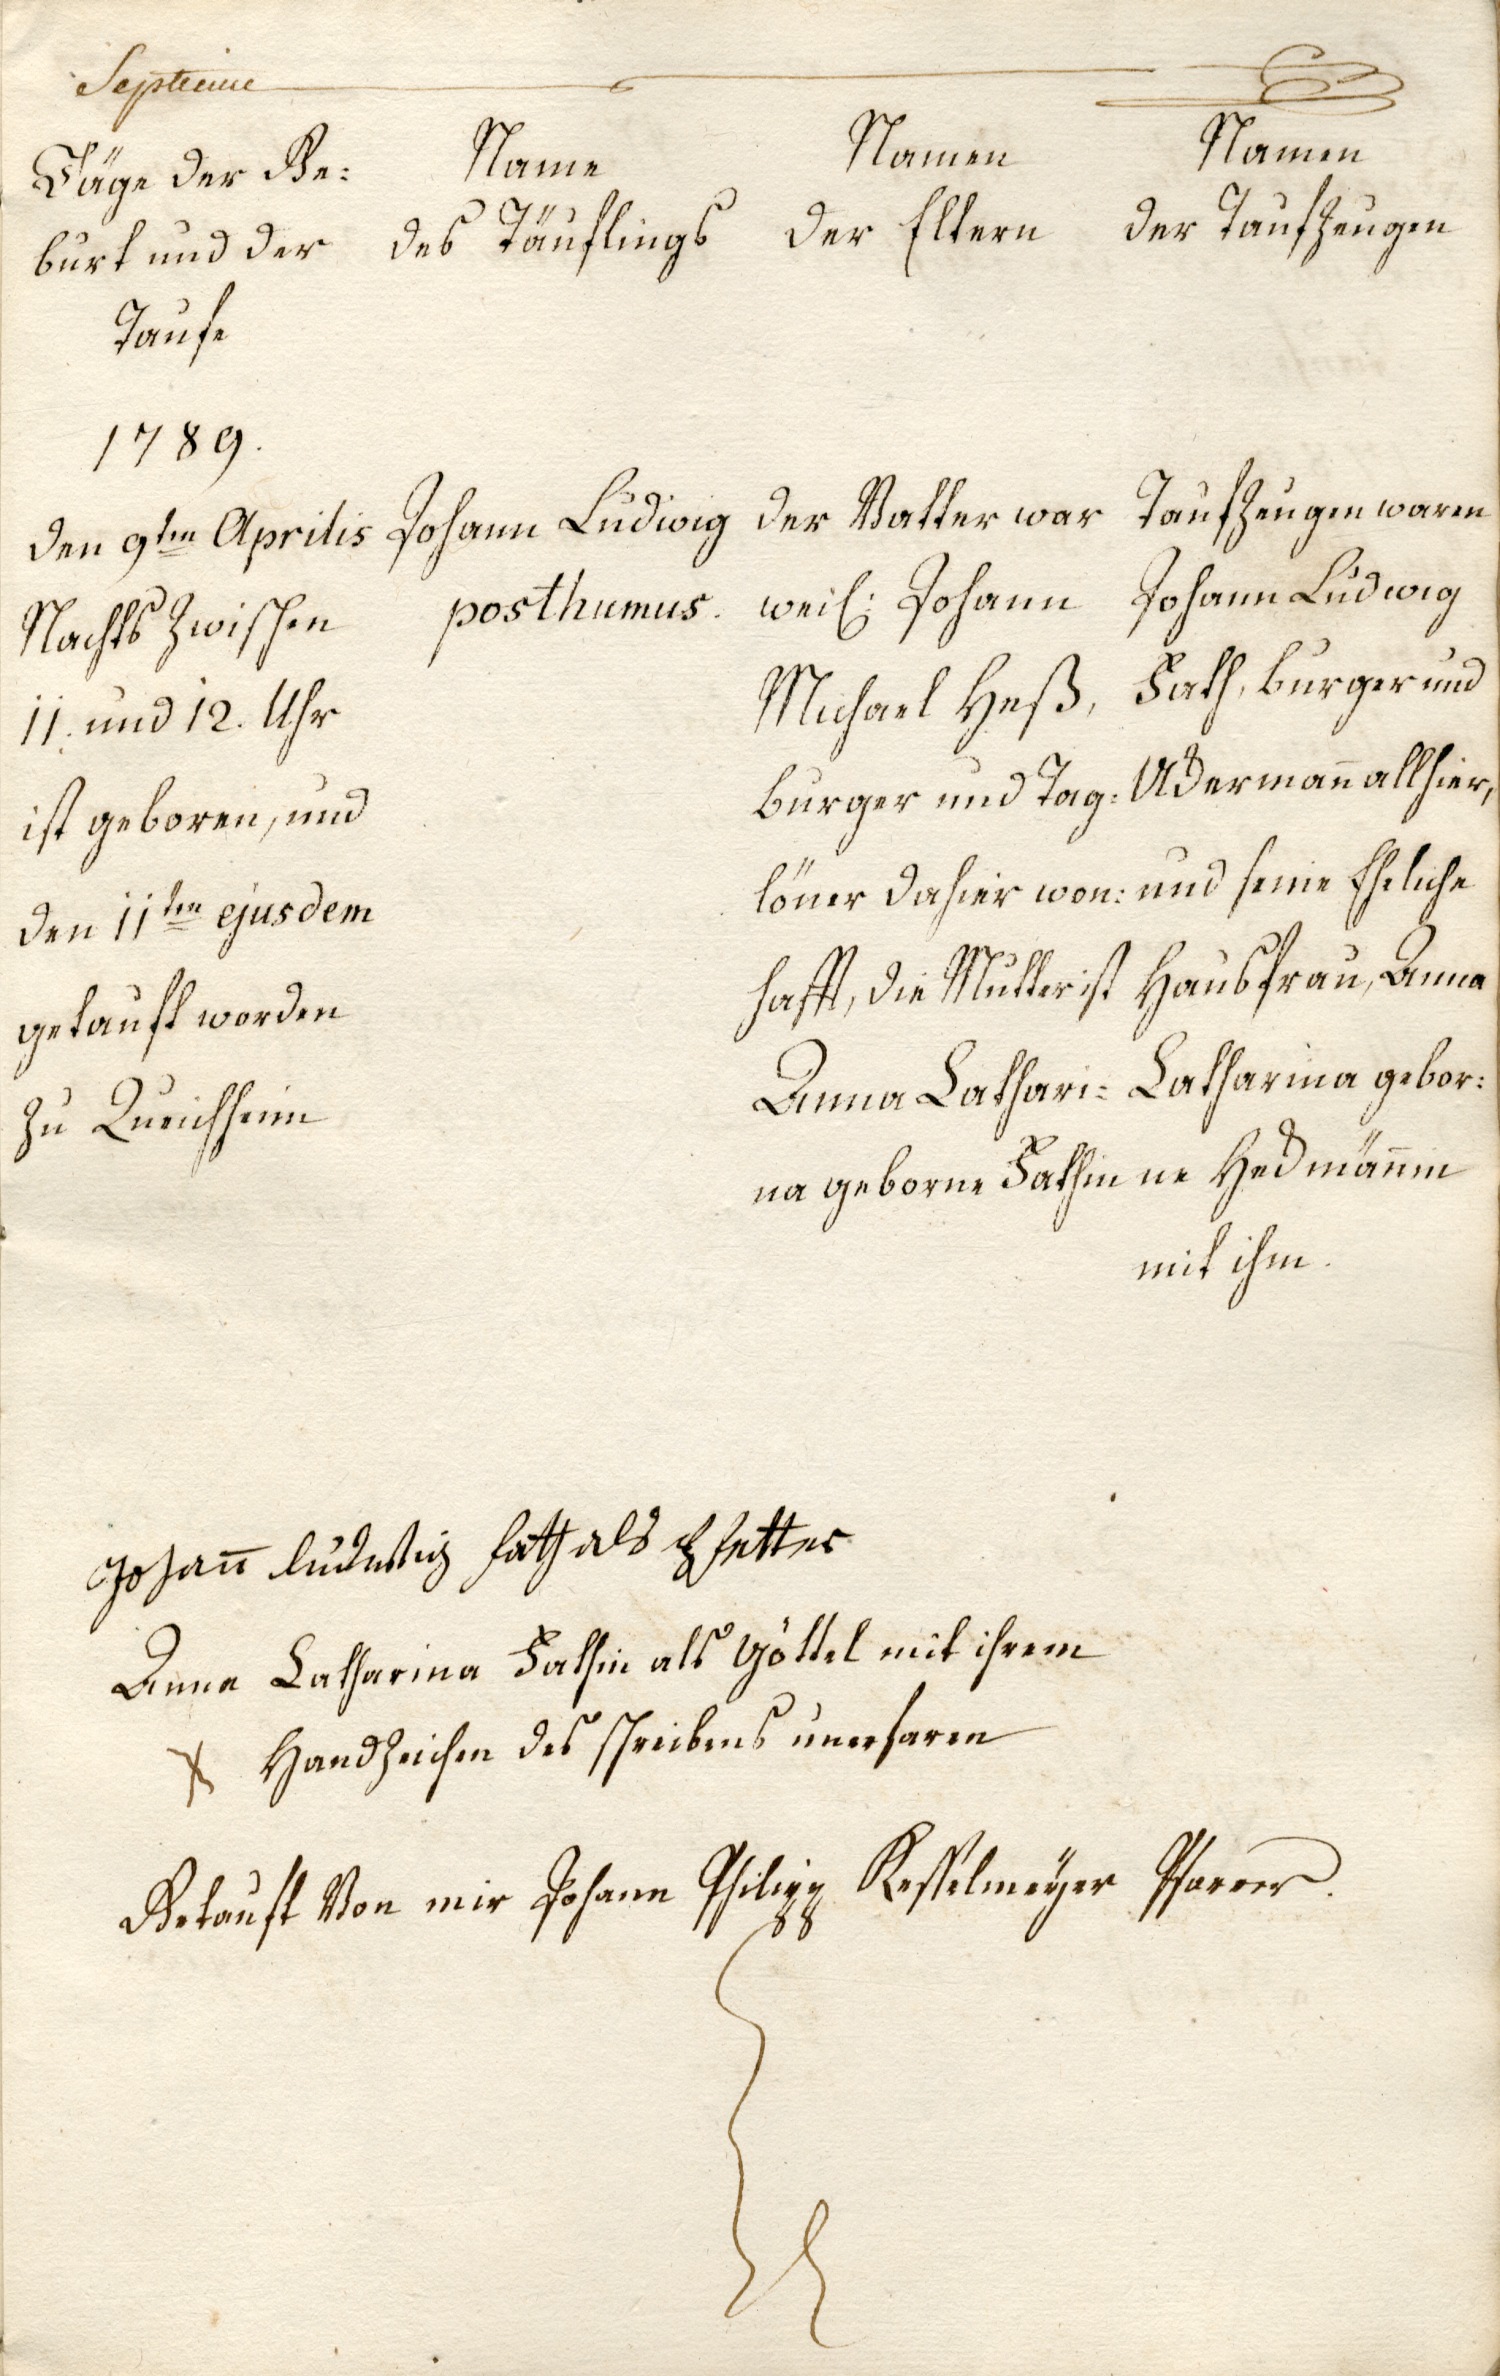 Septieme
Täge der Ge:
burt und der
Taufe
1789.
den 9ten Aprilis
Nachts zwischen
11. und 12. Uhr
ist geboren, und
den 11ten ejusdem
getauft worden
zu Queichheim
Name
des Täuflings
Johann Ludwig
posthumus.
Namen
der Eltern
der Vatter war
weil: Johann
Michael Heß,
burger und Tag:
löner dahier won:
hafft, die Mutter ist
Anna Cathari:
na geborne Fathin
Namen
der Taufzeugen
Taufzeugen waren
Johann Ludwig
Fath, burger und
Ackermañ allhier,
und seine Eheliche
Hausfrau, Anna
Catharina gebor:
ne Heckmäñin
mit ihm.
Johañ ludwig fath als Pfetter
Anna Catharina Fathin als Göttel mit ihrem
x Handzeichen des schreibens unerfaren
Getauft Von mir Johann Philipp Kesselmeÿer Pfarrer.